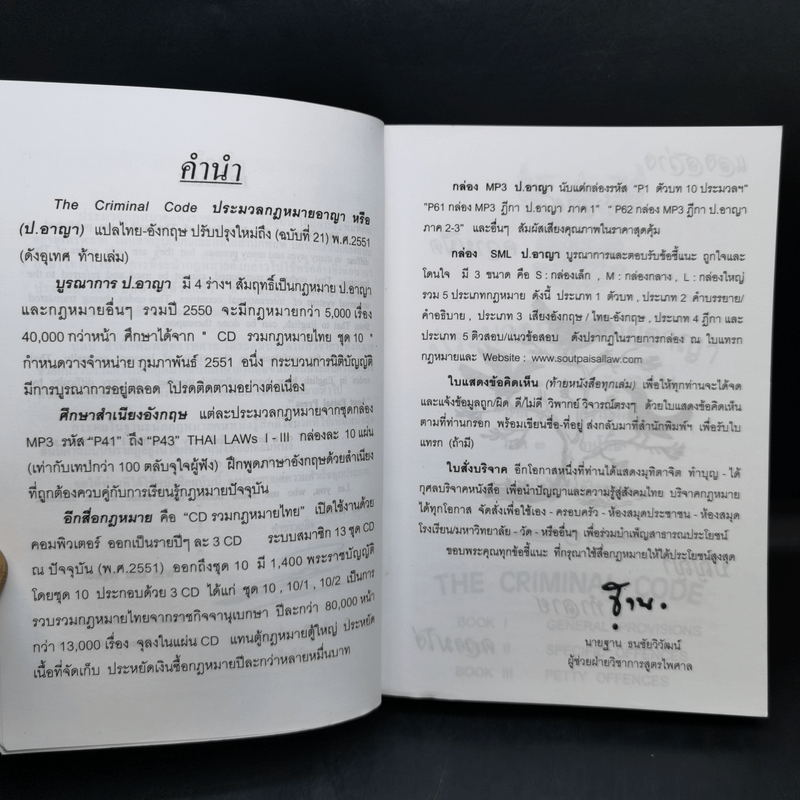 คำนำ
The Criminal Code ประมวลกฎหมายอาญา หรือ
(ป.อาญา) แปลไทย-อังกฤษ ปรับปรุงใหม่ถึง (ฉบับที่ 21) พ.ศ.2551
(ดังอุเทศ ท้ายเล่ม)
บูรณาการ ป.อาญา มี 4 ร่างฯ สัมฤทธิ์เป็นกฎหมาย ป.อาญา
และกฎหมายอื่นๆ รวมปี 2550 จะมีกฎหมายกว่า 5,000 เรื่อง
40,000 กว่าหน้า ศึกษาได้จาก " CD รวมกฎหมายไทย ชุด 10 "
กำหนดวางจำหน่าย กุมภาพันธ์ 2551 อนึ่ง กระบวนการนิติบัญญัติ
มีการบูรณาการอยู่ตลอด โปรดติดตามอย่างต่อเนื่อง
ศึกษาสำเนียงอังกฤษ แต่ละประมวลกฎหมายจากชุดกล่อง
MP3 รหัส "P41" ถึง "P43" THAI LAWs I - III กล่องละ 10 แผ่น
(เท่ากับเทปกว่า 100 ตลับจุใจผู้ฟัง) ฝึกพูดภาษาอังกฤษด้วยสำเนียง
ที่ถูกต้องควบคู่กับการเรียนรู้กฎหมายปัจจุบัน
อีกสื่อกฎหมาย คือ "CD รวมกฎหมายไทย" เปิดใช้งานด้วย
คอมพิวเตอร์ ออกเป็นรายปีๆ ละ 3 CD ระบบสมาชิก 13 ชุด CD
ณ ปัจจุบัน (พ.ศ.2551) ออกถึงชุด 10 มี 1,400 พระราชบัญญัติ
โดยชุด 10 ประกอบด้วย 3 CD ได้แก่ ชุด 10 , 10/1 , 10/2 เป็นการ
รวบรวมกฎหมายไทยจากราชกิจจานุเบกษา ปีละกว่า 80,000 หน้า
กว่า 13,000 เรื่อง จุลงในแผ่น CD แทนตู้กฎหมายตู้ใหญ่ ประหยัด
เนื้อที่จัดเก็บ ประหยัดเงินซื้อกฎหมายปีละกว่าหลายหมื่นบาท
กล่อง MP3 ป.อาญา นับแต่กล่องรหัส "P1 ตัวบท 10 ประมวลฯ"
"P61 กล่อง MP3 ฎีกา ป.อาญา ภาค 1" " P62 กล่อง MP3 ฎีกา ป.อาญา
ภาค 2-3" และอื่นๆ สัมผัสเสียงคุณภาพในราคาสุดคุ้ม
กล่อง SML ป.อาญา บูรณาการและตอบรับข้อชี้แนะ ถูกใจและ
โดนใจ มี 3 ขนาด คือ S : กล่องเล็ก , M : กล่องกลาง , L : กล่องใหญ่
รวม 5 ประเภทกฎหมาย ดังนี้ ประเภท 1 ตัวบท , ประเภท 2 คำบรรยาย/
คำอธิบาย , ประเภท 3 เสียงอังกฤษ / ไทย-อังกฤษ , ประเภท 4 ฎีกา และ
ประเภท 5 ติวสอบ/แนวข้อสอบ ดังปรากฏในรายการกล่อง ณ ใบแทรก
กฎหมายและ Website : www.soutpaisallaw.com
ใบแสดงข้อคิดเห็น (ท้ายหนังสือทุกเล่ม) เพื่อให้ทุกท่านจะได้จด
และแจ้งข้อมูลถูก/ผิด ดี/ไม่ดี วิพากย์ วิจารณ์ตรงๆ ด้วยใบแสดงข้อคิดเห็น
ตามที่ท่านกรอก พร้อมเขียนชื่อ-ที่อยู่ ส่งกลับมาที่สำนักพิมพ์ฯ เพื่อรับใบ
แทรก (ถ้ามี)
ใบสั่งบริจาค อีกโอกาสหนึ่งที่ท่านได้แสดงมุทิตาจิต ทำบุญ - ได้
กุศลบริจาคหนังสือ เพื่อนำปัญญาและความรู้สู่สังคมไทย บริจาคกฎหมาย
ได้ทุกโอกาส จัดสั่งเพื่อใช้เอง - ครอบครัว - ห้องสมุดประชาชน - ห้องสมุด
โรงเรียน/มหาวิทยาลัย - วัด - หรืออื่นๆ เพื่อร่วมบำเพ็ญสาธารณประโยชน์
ขอบพระคุณทุกข้อชี้แนะ ที่กรุณาใช้สื่อกฎหมายให้ได้ประโยชน์สูงสุด
นายฐาน ธนชัยวิวัฒน์
ผู้ช่วยฝ่ายวิชาการสูตรไพศาล